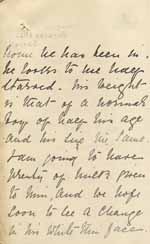 home he has been in.
he looks to me half
starved. his weight
is that of a normal
boy of half his age
and his the same.
I am going to have
plenty of milk given
to him, and we hope
soon to see a change
in his white thin face.